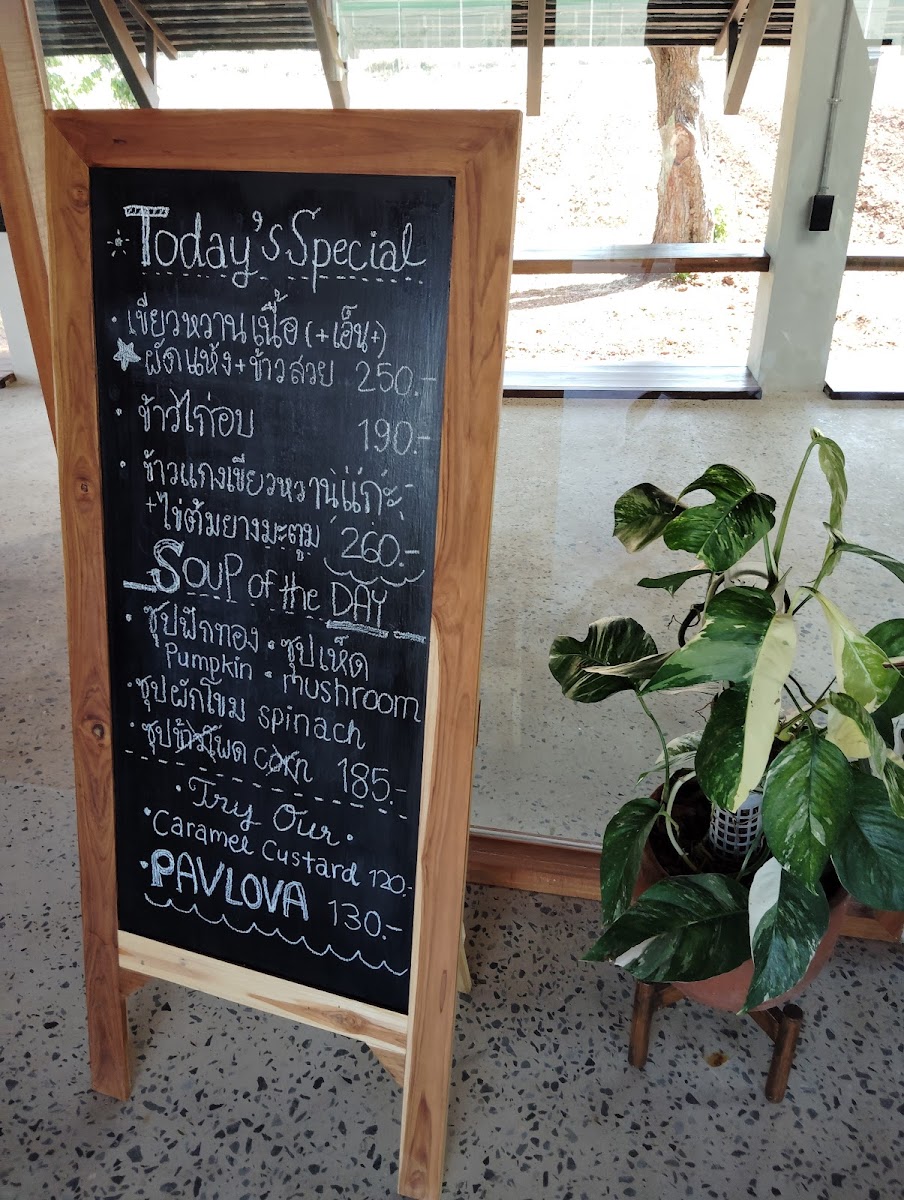 Today's Special
· เขียวหวานเนื้อ (+เอ็น+)
ผัดแห้ง+ข้าวสวย 250.-
· ข้าวไก่อบ 190.-
· ข้าวแกงเขียวหวานแกะ
+ไข่ต้มยางมะตูม 260.-
Soup of the DAY
· ซุปฟักทอง · ซุปเห็ด
Pumpkin · mushroom
· ซุปผักโขม spinach
· ซุปข้าวโพด corn 185.-
· Try Our ·
· Caramel Custard 120.-
· PAVLOVA 130.-